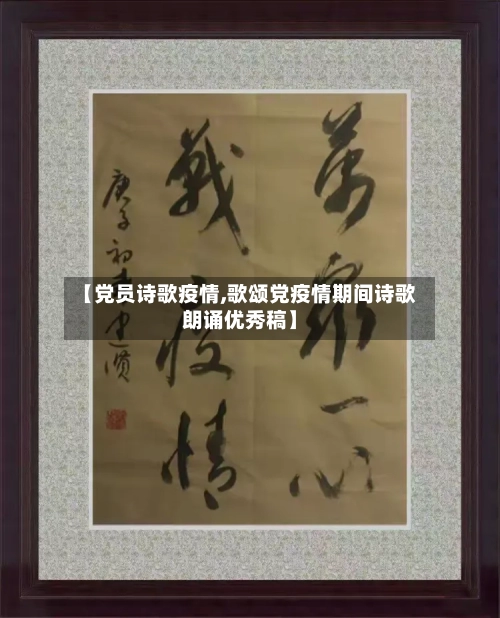 【党员诗歌疫情,歌颂党疫情期间诗歌
朗诵优秀稿】
萬衆一心
戰疫情
庚子初春建